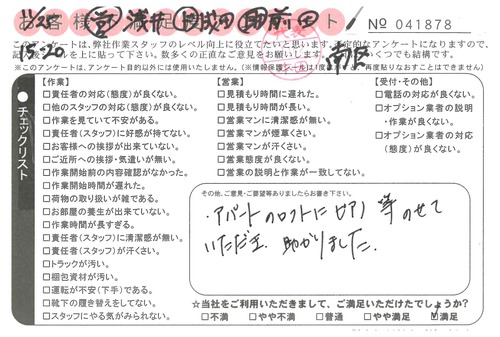 12/28 営 浅井 前田
お客様満足度アンケート
№ 041878
このアンケートは、弊社作業スタッフのレベル向上に役立てたいと思います。
15:20
※このアンケートは、アンケート目的以外には使用いたしません。
チェックリスト
【作業】
□責任者の対応(態度)が良くない。
□他のスタッフの対応(態度)が良くない。
□作業を見ていて不安がある。
□責任者(スタッフ)に好感が持てない。
□お客様への挨拶が出来ていない。
□ご近所への挨拶・気遣いが無い。
□作業開始前の内容確認がなかった。
□作業開始時間が遅れた。
□荷物の取り扱いが雑である。
□お部屋の養生が出来ていない。
□作業時間が長すぎる。
□責任者(スタッフ)に清潔感が無い。
□責任者(スタッフ)が汗くさい。
□トラックが汚い。
□梱包資材が汚い。
□運転が不安(下手)である。
□靴下の履き替えをしてない。
□スタッフにやる気がみられない。
【営業】
□見積もり時間に遅れた。
□見積もり時間が長い。
□営業マンに清潔感が無い。
□営業マンが煙草くさい。
□営業マンが汗くさい。
□営業態度が良くない。
□営業の説明と作業が一致してない。
【受付・その他】
□電話の対応が良くない。
□オプション業者の説明
・作業が良くない。
□オプション業者の対応
(態度)が良くない。
その他、ご意見・ご要望等ありましたらお書き下さい。
・アパートのロフトにピアノ等のせて
いただき、助かりました。
☆当社をご利用いただきまして、ご満足いただけたでしょうか?
□不満 □やや不満 □普通 □やや満足 ☑満足